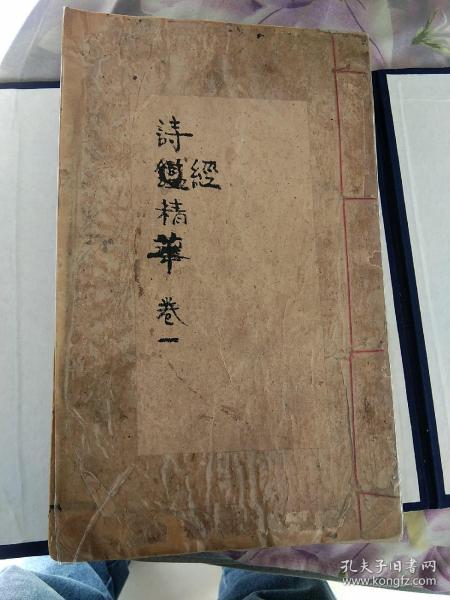 詩經精華 卷一
孔夫子旧书网
www.kongfz.com